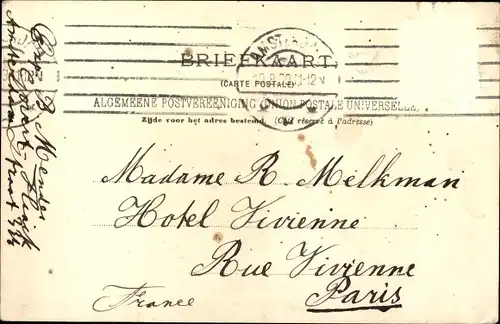 BRIEFKAART.
(CARTE POSTALE)
ALGEMEENE POSTVEREENIGING (UNION POSTALE UNIVERSELLE)
Zijde voor het adres bestemd. (Côté réservé à l'adresse)
AMSTERDAM
Madame R. Melkman
Hotel Vivienne
Rue Vivienne
Paris
France
Mendes
Amsterdam